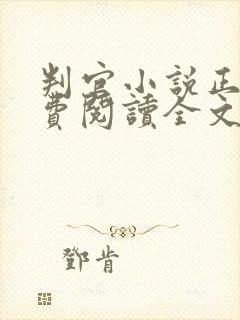 判官小說正
費閱讀全文
鄧肯